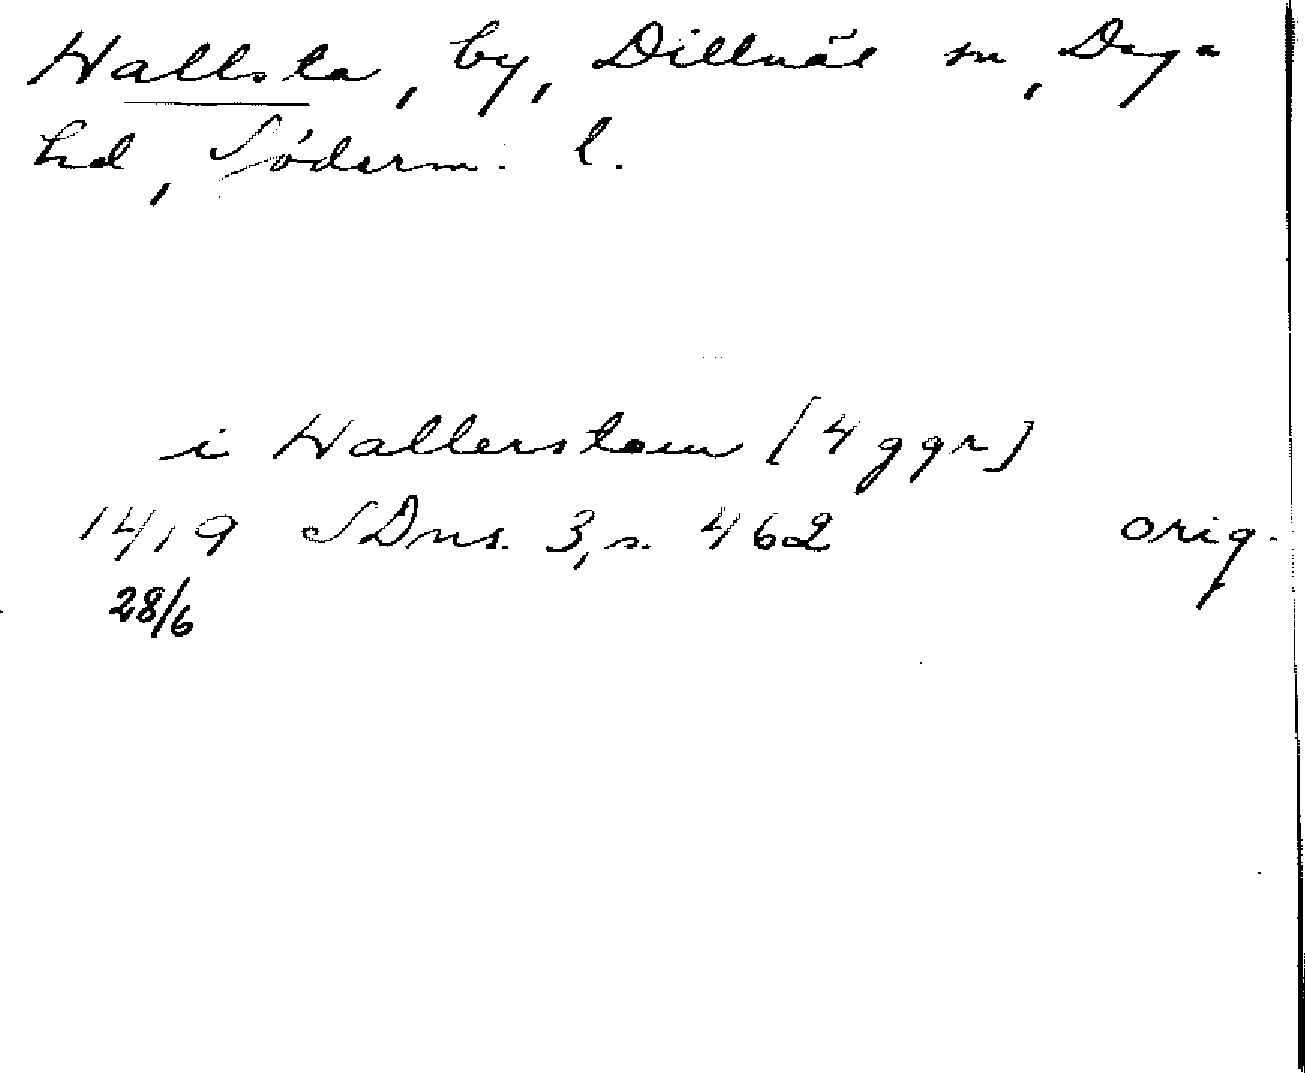 Wallsta, by, Dillnäs sn, Daga
hd, Söderm. l.
i Wallerstom [4 ggr]
1419 SDns. 3, s. 462 orig.
28/6